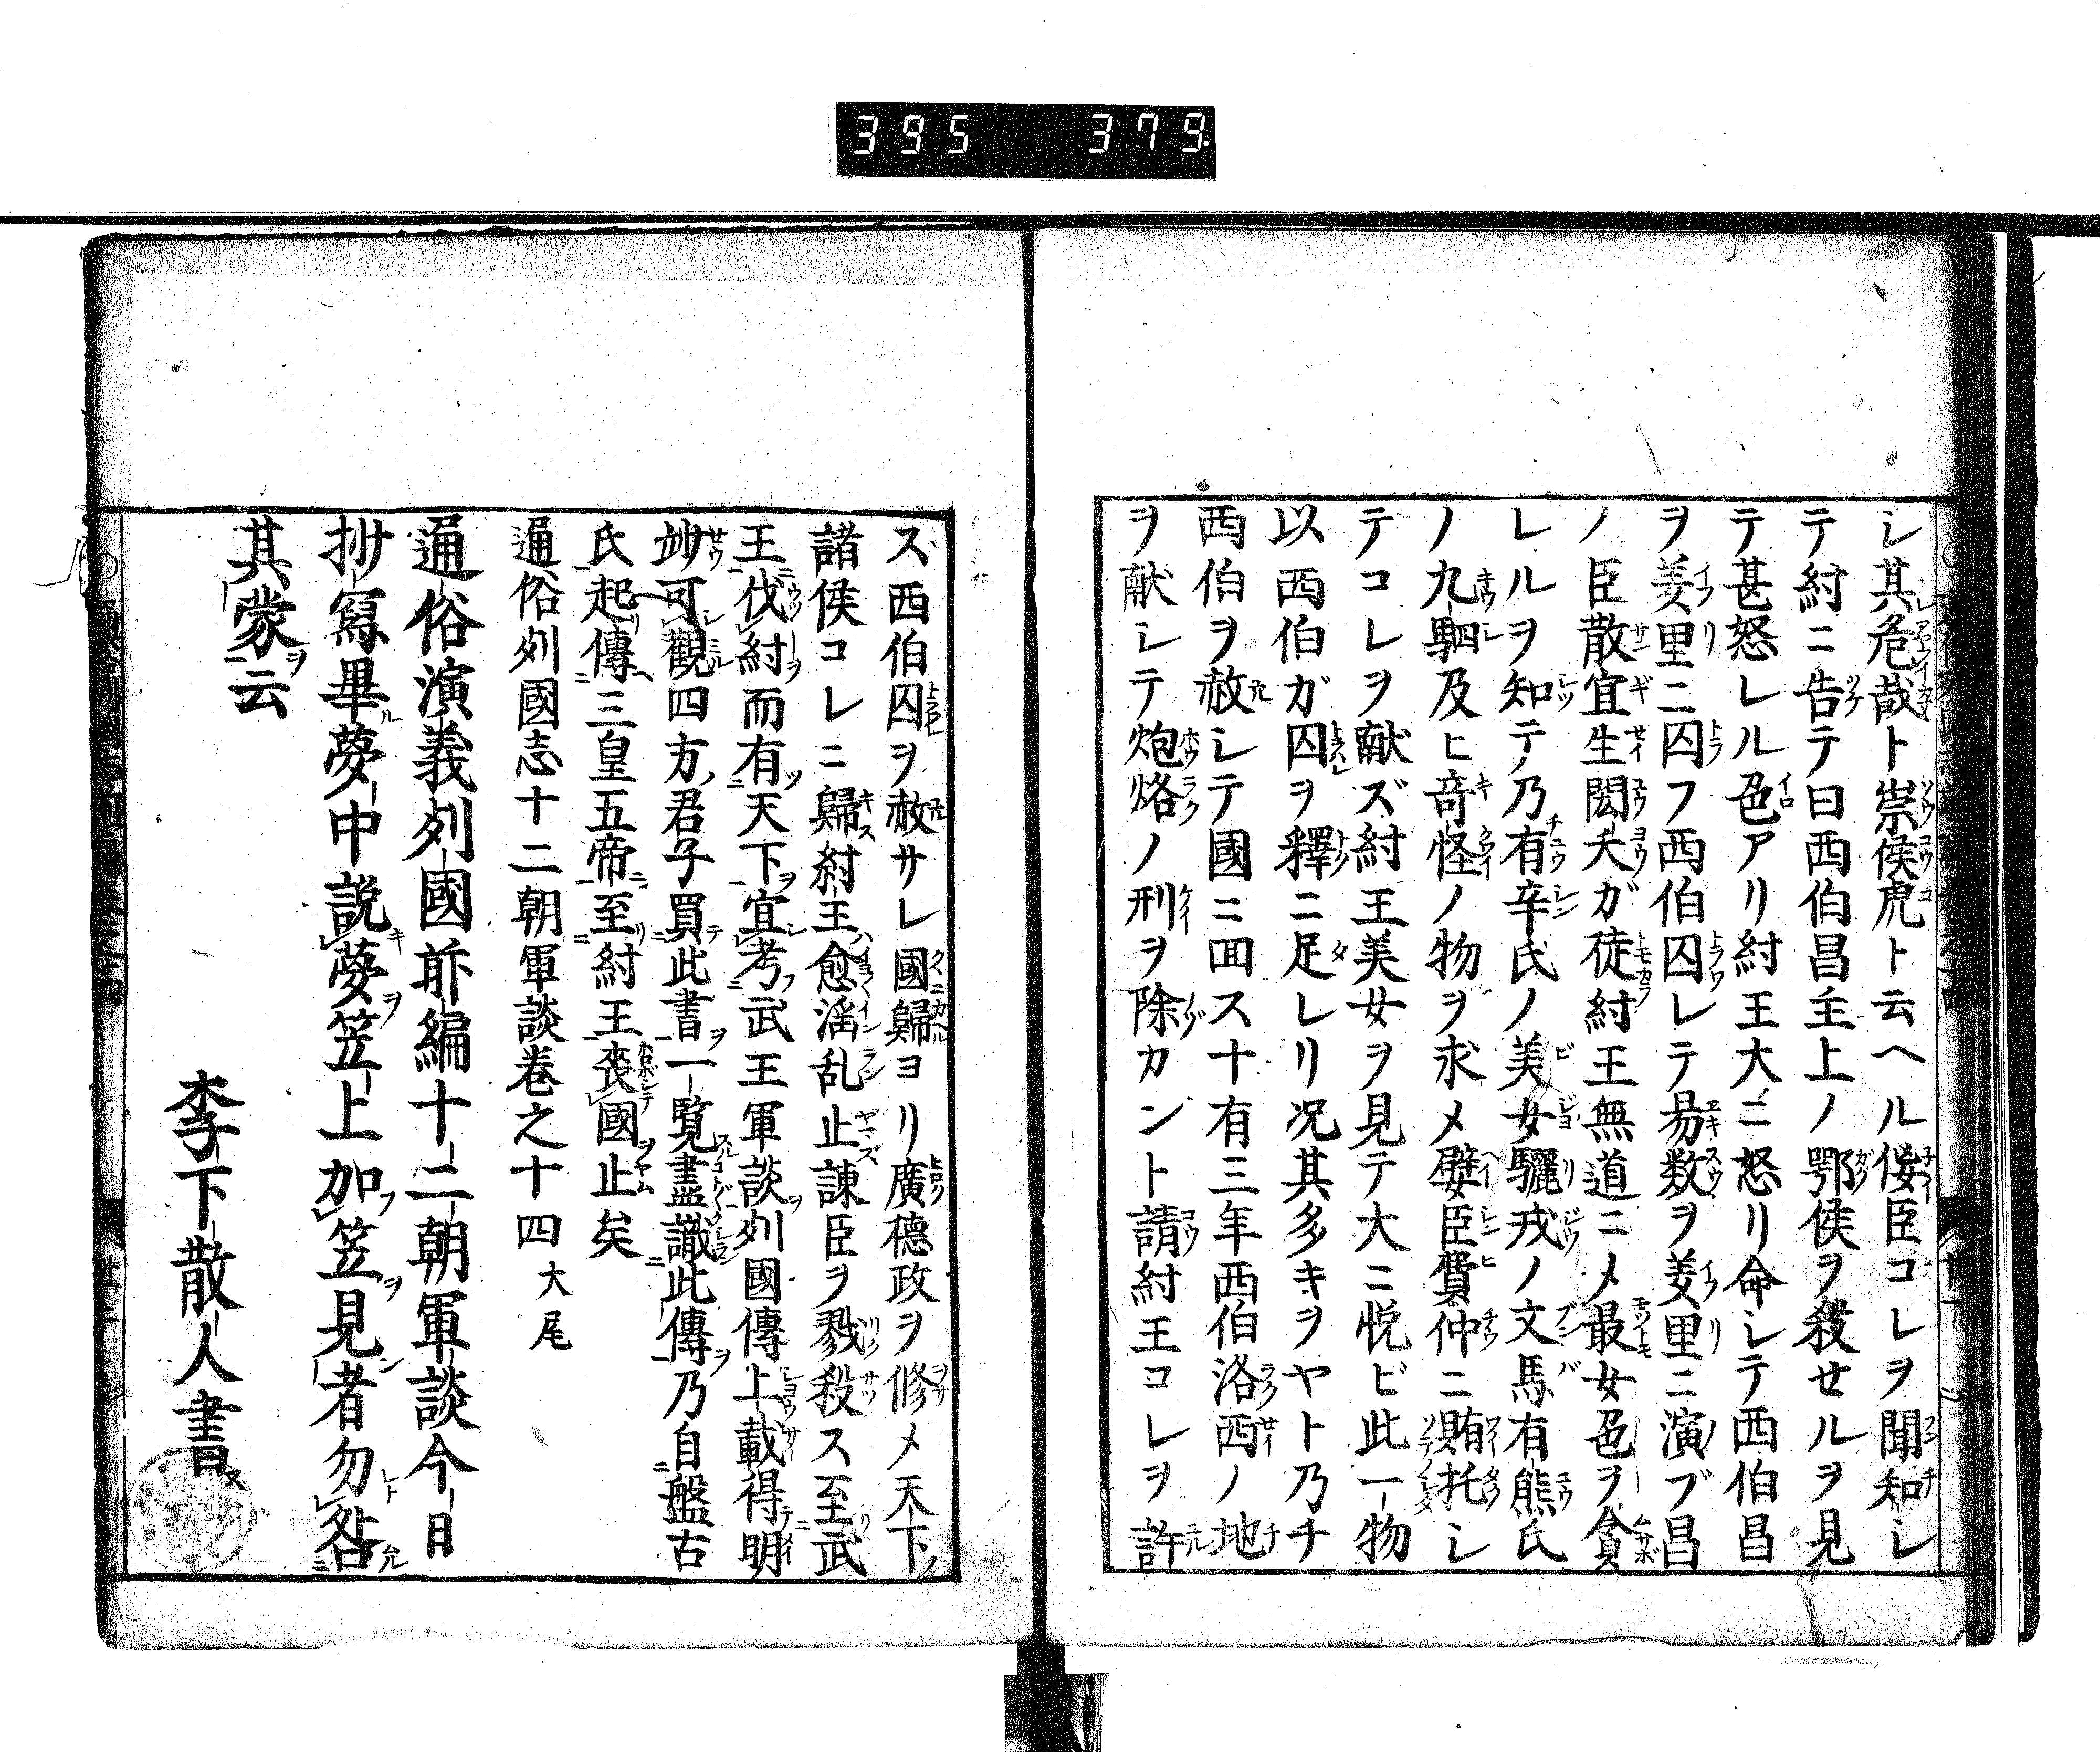 395 379
シ其危哉ト崇侯虎ト云ヘル佞臣コレヲ聞知シ
テ紂ニ告テ曰西伯昌主上ノ鄂侯ヲ殺せルヲ見
テ甚怒レル色アリ紂王大ニ怒リ命シテ西伯昌
ヲ羑里ニ囚フ西伯囚レテ易数ヲ羑里ニ演ブ昌
ノ臣散宜生閎夭ガ徒紂王無道ニメ最女色ヲ貪
レルヲ知テ乃有辛氏ノ美女驪戎ノ文馬有熊氏
ノ九駟及ヒ奇怪ノ物ヲ求メ嬖臣費仲ニ賄托シ
テコレヲ献ズ紂王美女ヲ見テ大ニ悦ビ此一物
以西伯ガ囚ヲ釋ニ足レリ况其多キヲヤト乃チ
西伯ヲ赦シテ國ニ囬ス十有三年西伯洛西ノ地
ヲ献シテ炮烙ノ刑ヲ除カント請紂王コレヲ許
ス西伯囚ヲ赦サレ國歸ヨリ廣德政ヲ修メ天下
諸侯コレニ歸紂王愈滛乱止諌臣ヲ戮殺ス至武
王伐紂而有天下宜考武王軍談列國傳上載得明
妙可觀四方君子買此書一覧盡識此傳乃自盤古
氏起傳三皇五帝至紂王喪國止矣
通俗列國志十二朝軍談巻之十四 大尾
通俗演義列國前編十二朝軍談今日
抄寫畢夢中説夢笠上加笠見者勿咎
其蒙云
李下散人書